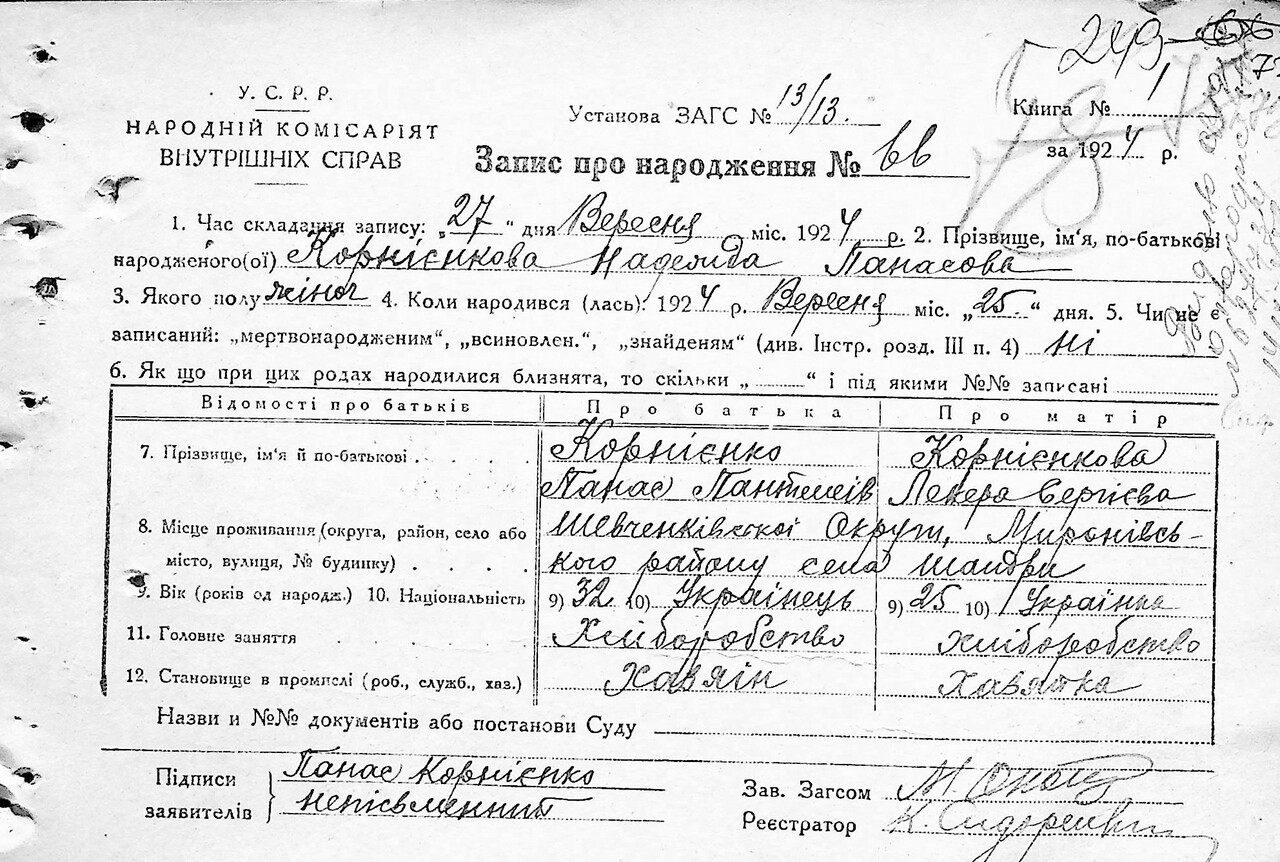 249
У. С. Р. Р.
НАРОДНІЙ КОМІСАРІЯТ
ВНУТРІШНІХ СПРАВ
Установа ЗАГС № 13/13.
Книга № 1
за 1924 р.
Запис про народження № 66
1. Час складання запису: „27“ дня Вересня міс. 1924 р. 2. Прізвище, ім'я, по-батькові
народженого(ої) Корнієнкова Надежда Панасова
3. Якого полу жіноч 4. Коли народився (лась): 1924 р. Вересня міс. „25.“ дня. 5. Чи не є
записаний: „мертвонародженим“, „всиновлен.“, „знайденям“ (див. Інстр. розд. III п. 4) ні
6. Як що при цих родах народилися близнята, то скільки „ “ і під якими №№ записані
Відомості про батьків Про батька Про матір
7. Прізвище, ім'я й по-батькові Корнієнко Корнієнкова
Панас Пантелеів Лекера Сергієва
8. Місце проживання (округа, район, село або Шевченківської Округи, Миронівсь-
місто, вулиця, № будинку) кого району села Шандри
9. Вік (років од народж.) 10. Національність 9) 32 10) Українець 9) 25 10) Українка
11. Головне заняття Хліборобство Хліборобство
12. Становище в промислі (роб., служб., хаз.) Хазяін Хазятка
Назви и №№ документів або постанови Суду
Підписи Панас Корнієнко
заявителів неписьменний
Зав. Загсом М.
Реєстратор